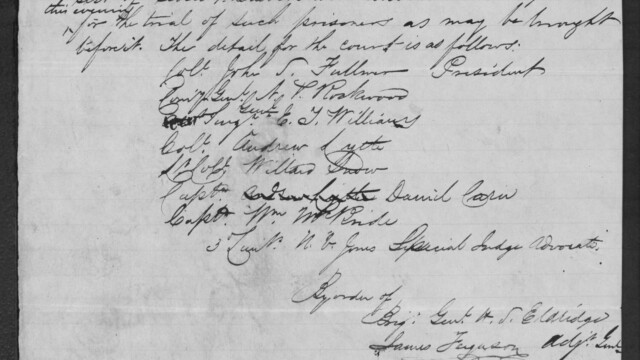 this evening
for the trial of such prisoners as may be brought
before it. The detail for the court is as follows.
Colt. John S. Fullmer President
Comy Genl. A. P. Rockwood
Surg. Genl. E. T. Williams
Colt. Andrew Lytle
Lt Colt. Willard Snow
Capt. Daniel Carn
Capt. Wm McBride
3d Lieut. N. V. Jones Special Judge Advocate.
By order of
Brig. Genl. H. S. Eldridge
James Ferguson Adjt. Genl.